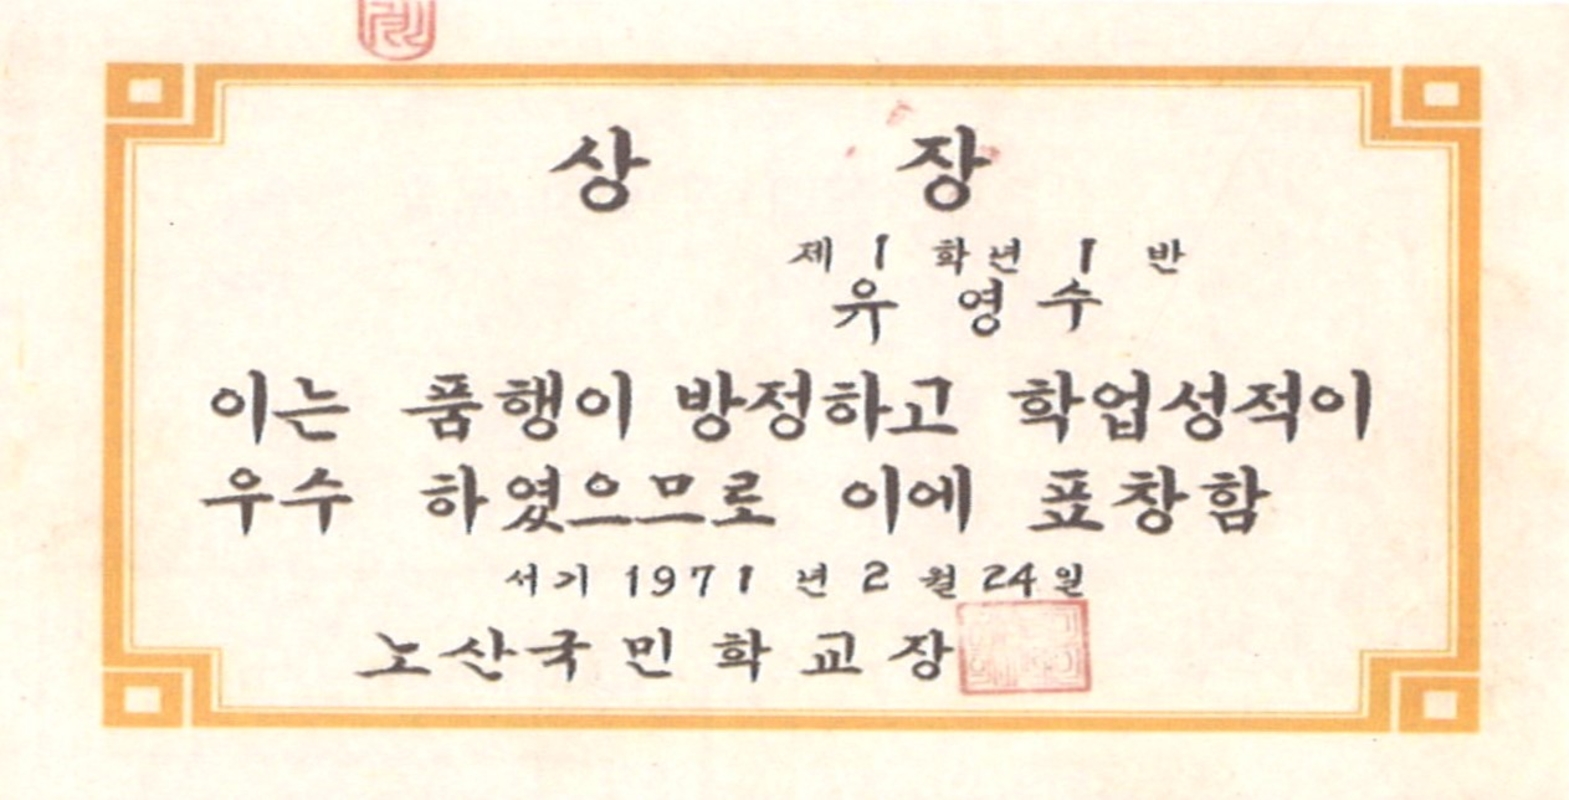 상 장
제 1 학년 1 반
유 영 수
이는 품행이 방정하고 학업성적이
우수 하였으므로 이에 표창함
서기 1971 년 2 월 24일
노산국민학교장